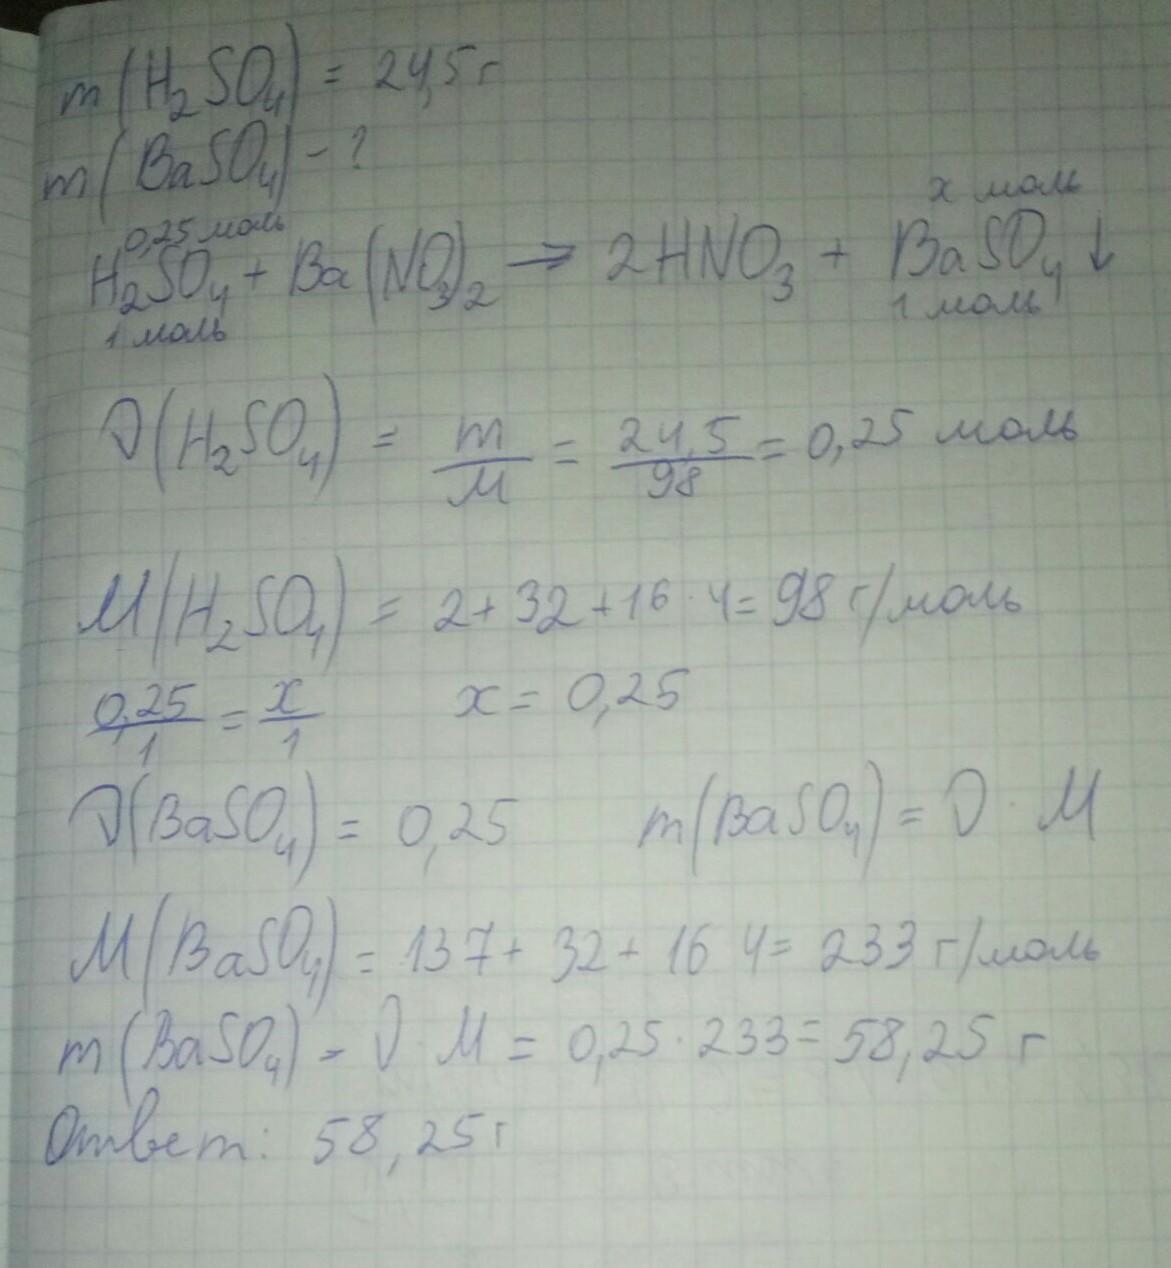 m(H₂SO₄) = 24,5 г
m(BaSO₄) - ?
0,25 моль x моль
H₂SO₄ + Ba(NO₃)₂ → 2HNO₃ + BaSO₄↓
1 моль 1 моль
ν(H₂SO₄) = m/M = 24,5/98 = 0,25 моль
M(H₂SO₄) = 2 + 32 + 16 · 4 = 98 г/моль
0,25/1 = x/1 x = 0,25
ν(BaSO₄) = 0,25 m(BaSO₄) = ν · M
M(BaSO₄) = 137 + 32 + 16 4 = 233 г/моль
m(BaSO₄) - ν · M = 0,25 · 233 = 58,25 г
Ответ: 58,25 г